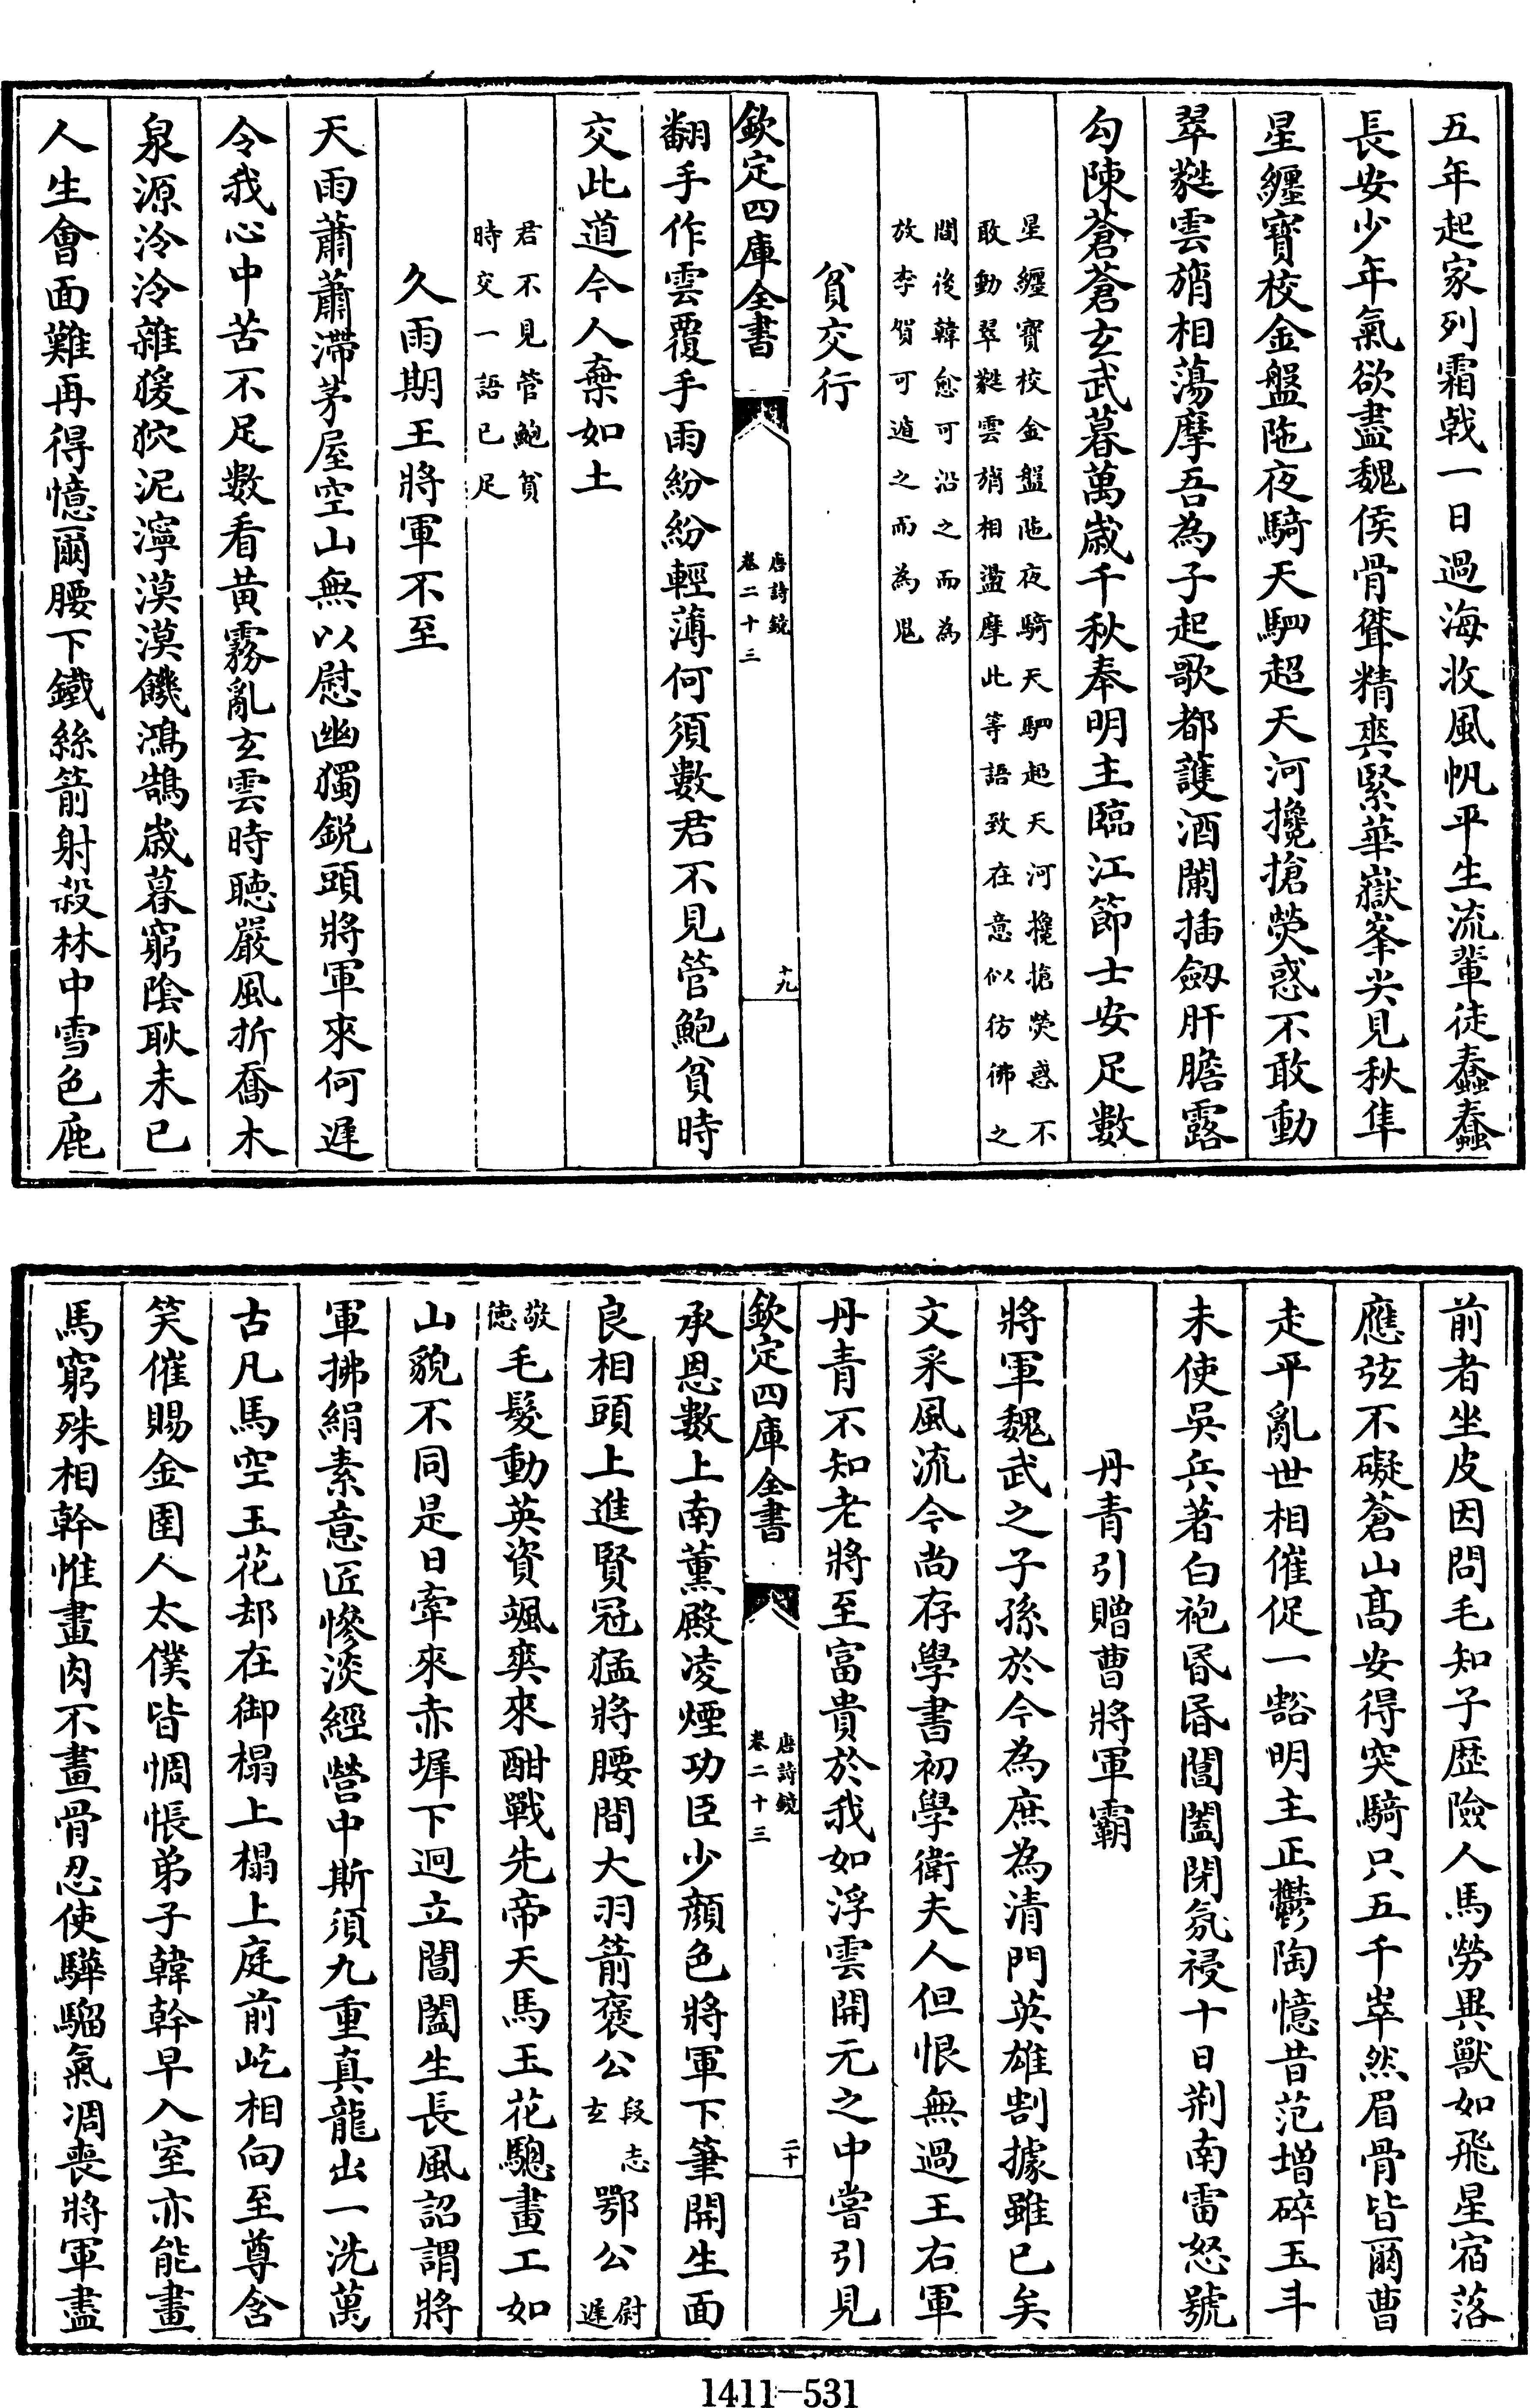 五年起家列霜戟一日過海收風帆平生流輩徒蠢蠢
長安少年氣欲盡魏侯骨聳精爽緊華嶽峯尖見秋隼
星纏寶校金盤陁夜騎天駟超天河攙搶熒惑不敢動
翠蕤雲旓相蕩摩吾為子起歌都護酒闌插劒肝膽露
勾陳蒼蒼玄武暮萬歲千秋奉明主臨江節士安足數
星纏寶校金盤陁夜騎天駟超天河攙搶熒惑不
敢動翠蕤雲旓相盪摩此等語致在意似彷彿之
間後韓愈可沿之而為
放李賀可遁之而為鬼
貧交行
欽定四庫全書
唐詩鏡
卷二十三
十九
翻手作雲覆手雨紛紛輕薄何須數君不見管鮑貧時
交此道今人棄如土
君不見管鮑貧
時交一語已足
久雨期王將軍不至
天雨蕭蕭滯茅屋空山無以慰幽獨銳頭將軍來何遲
令我心中苦不足數看黃霧亂玄雲時聽嚴風折喬木
泉源泠泠雜猨狖泥濘漠漠饑鴻鵠歲暮窮陰耿未已
人生會面難再得憶爾腰下鐵絲箭射殺林中雪色鹿
前者坐皮因問毛知子歷險人馬勞異獸如飛星宿落
應弦不礙蒼山高安得突騎只五千崒然眉骨皆爾曹
走平亂世相催促一豁明主正鬱陶憶昔范增碎玉斗
未使吳兵著白袍昏昏閶闔閉氛祲十日荆南雷怒號
丹青引贈曹將軍霸
將軍魏武之子孫於今為庶為清門英雄割據雖已矣
文采風流今尚存學書初學衛夫人但恨無過王右軍
丹青不知老將至富貴於我如浮雲開元之中嘗引見
欽定四庫全書
唐詩鏡
卷二十三
二十
承恩數上南薰殿凌煙功臣少顏色將軍下筆開生面
良相頭上進賢冠猛將腰間大羽箭褒公段志玄鄂公尉遲
敬德毛髮動英資颯爽來酣戰先帝天馬玉花驄畫工如
山貌不同是日牽來赤墀下迥立閶闔生長風詔謂將
軍拂絹素意匠慘淡經營中斯須九重真龍出一洗萬
古凡馬空玉花却在御榻上榻上庭前屹相向至尊含
笑催賜金圉人太僕皆惆悵弟子韓幹早入室亦能畫
馬窮殊相幹惟畫肉不畫骨忍使驊騮氣凋喪將軍盡
1411—531